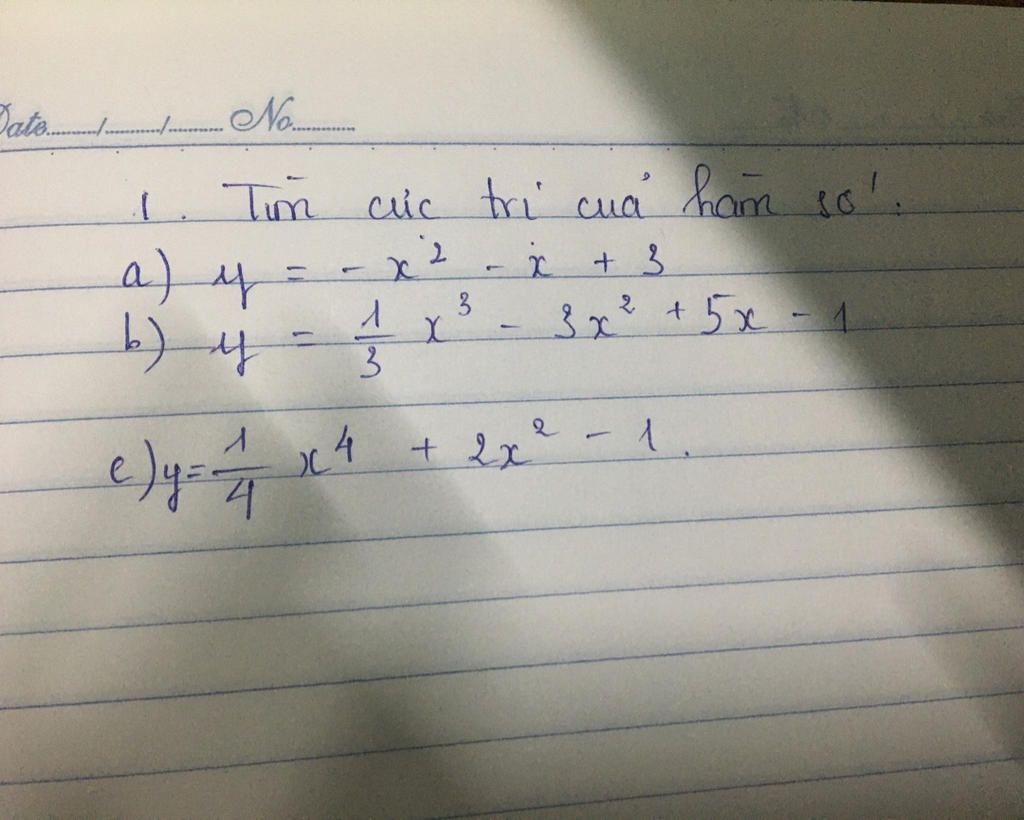 Date......../......../........ No............
1. Tìm cực trị của hàm số:
a) y = - x² - x + 3
b) y = 1/3 x³ - 3x² + 5x - 1
c) y = 1/4 x⁴ + 2x² - 1.